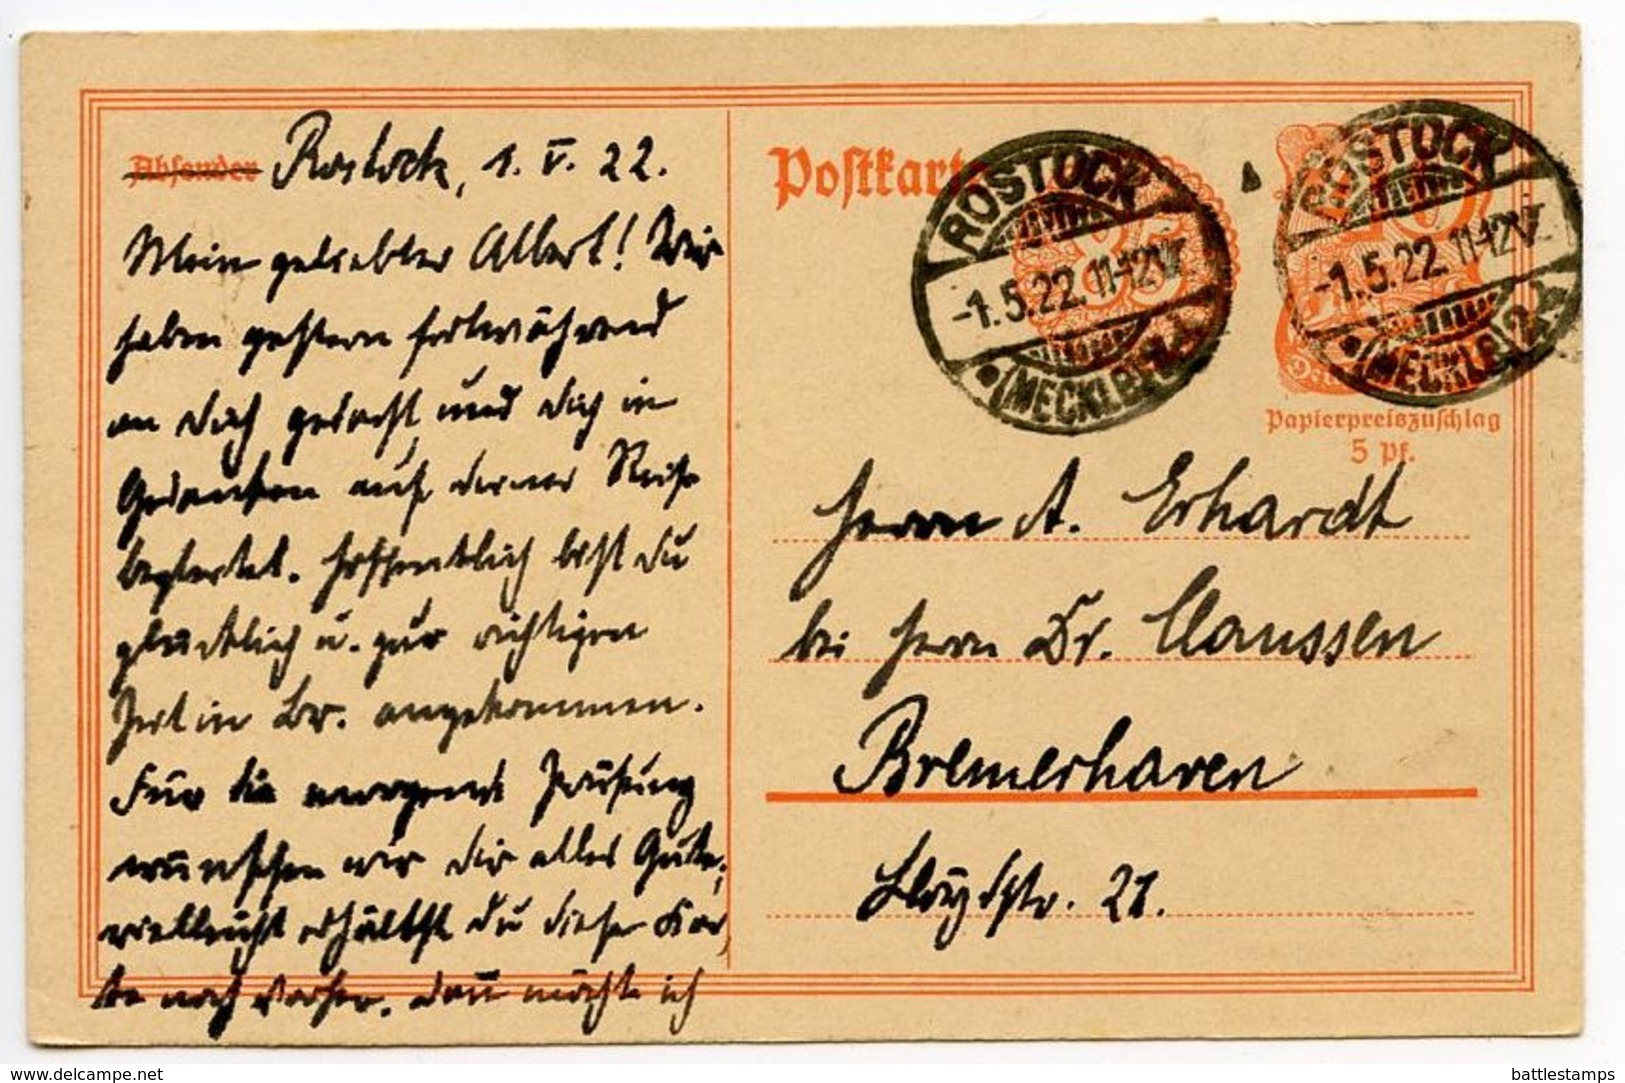 Absender Rostock, 1. V. 22.
Mein geliebter Albert! Wir
haben gestern fortwährend
an Dich gedacht und Dich in
Gedanken auf deiner Reise
begleitet. Hoffentlich bist Du
glücklich u. zur richtigen
Zeit in Br. angekommen.
Für die morgende Prüfung
wünschen wir Dir alles Gute,
vielleicht erhältst Du diese Kar-
te noch vorher. Dann möchte ich
Postkarte
ROSTOCK
-1.5.22. 11-12V.
(MECKLB)
ROSTOCK
-1.5.22. 11-12V.
(MECKLB) 2
Papierpreiszuschlag
5 Pf.
Herrn A. Erhardt
bei Herrn Dr. Claussen
Bremerhaven
Lloydstr. 21.
delcampe.com
battlestamps